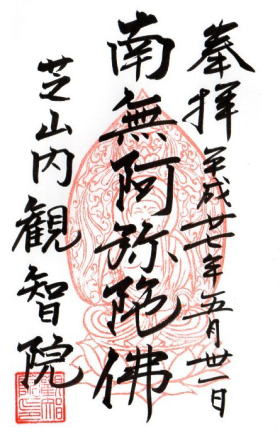 奉拝 平成廿七年五月卅一日
南無阿弥陀佛
芝山内観智院